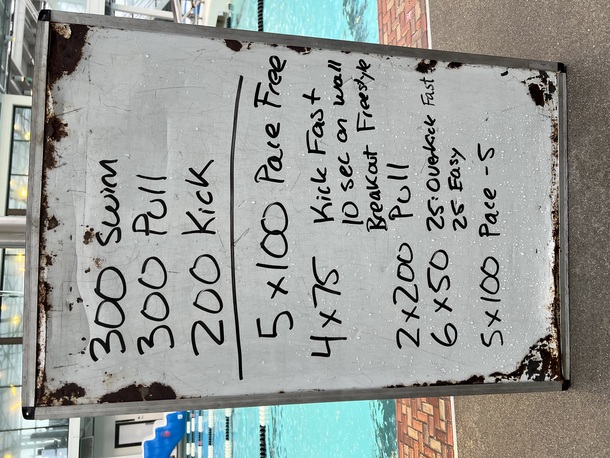 300 Swim
300 Pull
200 Kick
5 x 100 Pace Free
4 x 75 Kick Fast
10 sec on wall
Breakout Freestyle
2 x 200 Pull
6 x 50 25: Overkick Fast
25 Easy
5 x 100 Pace - 5